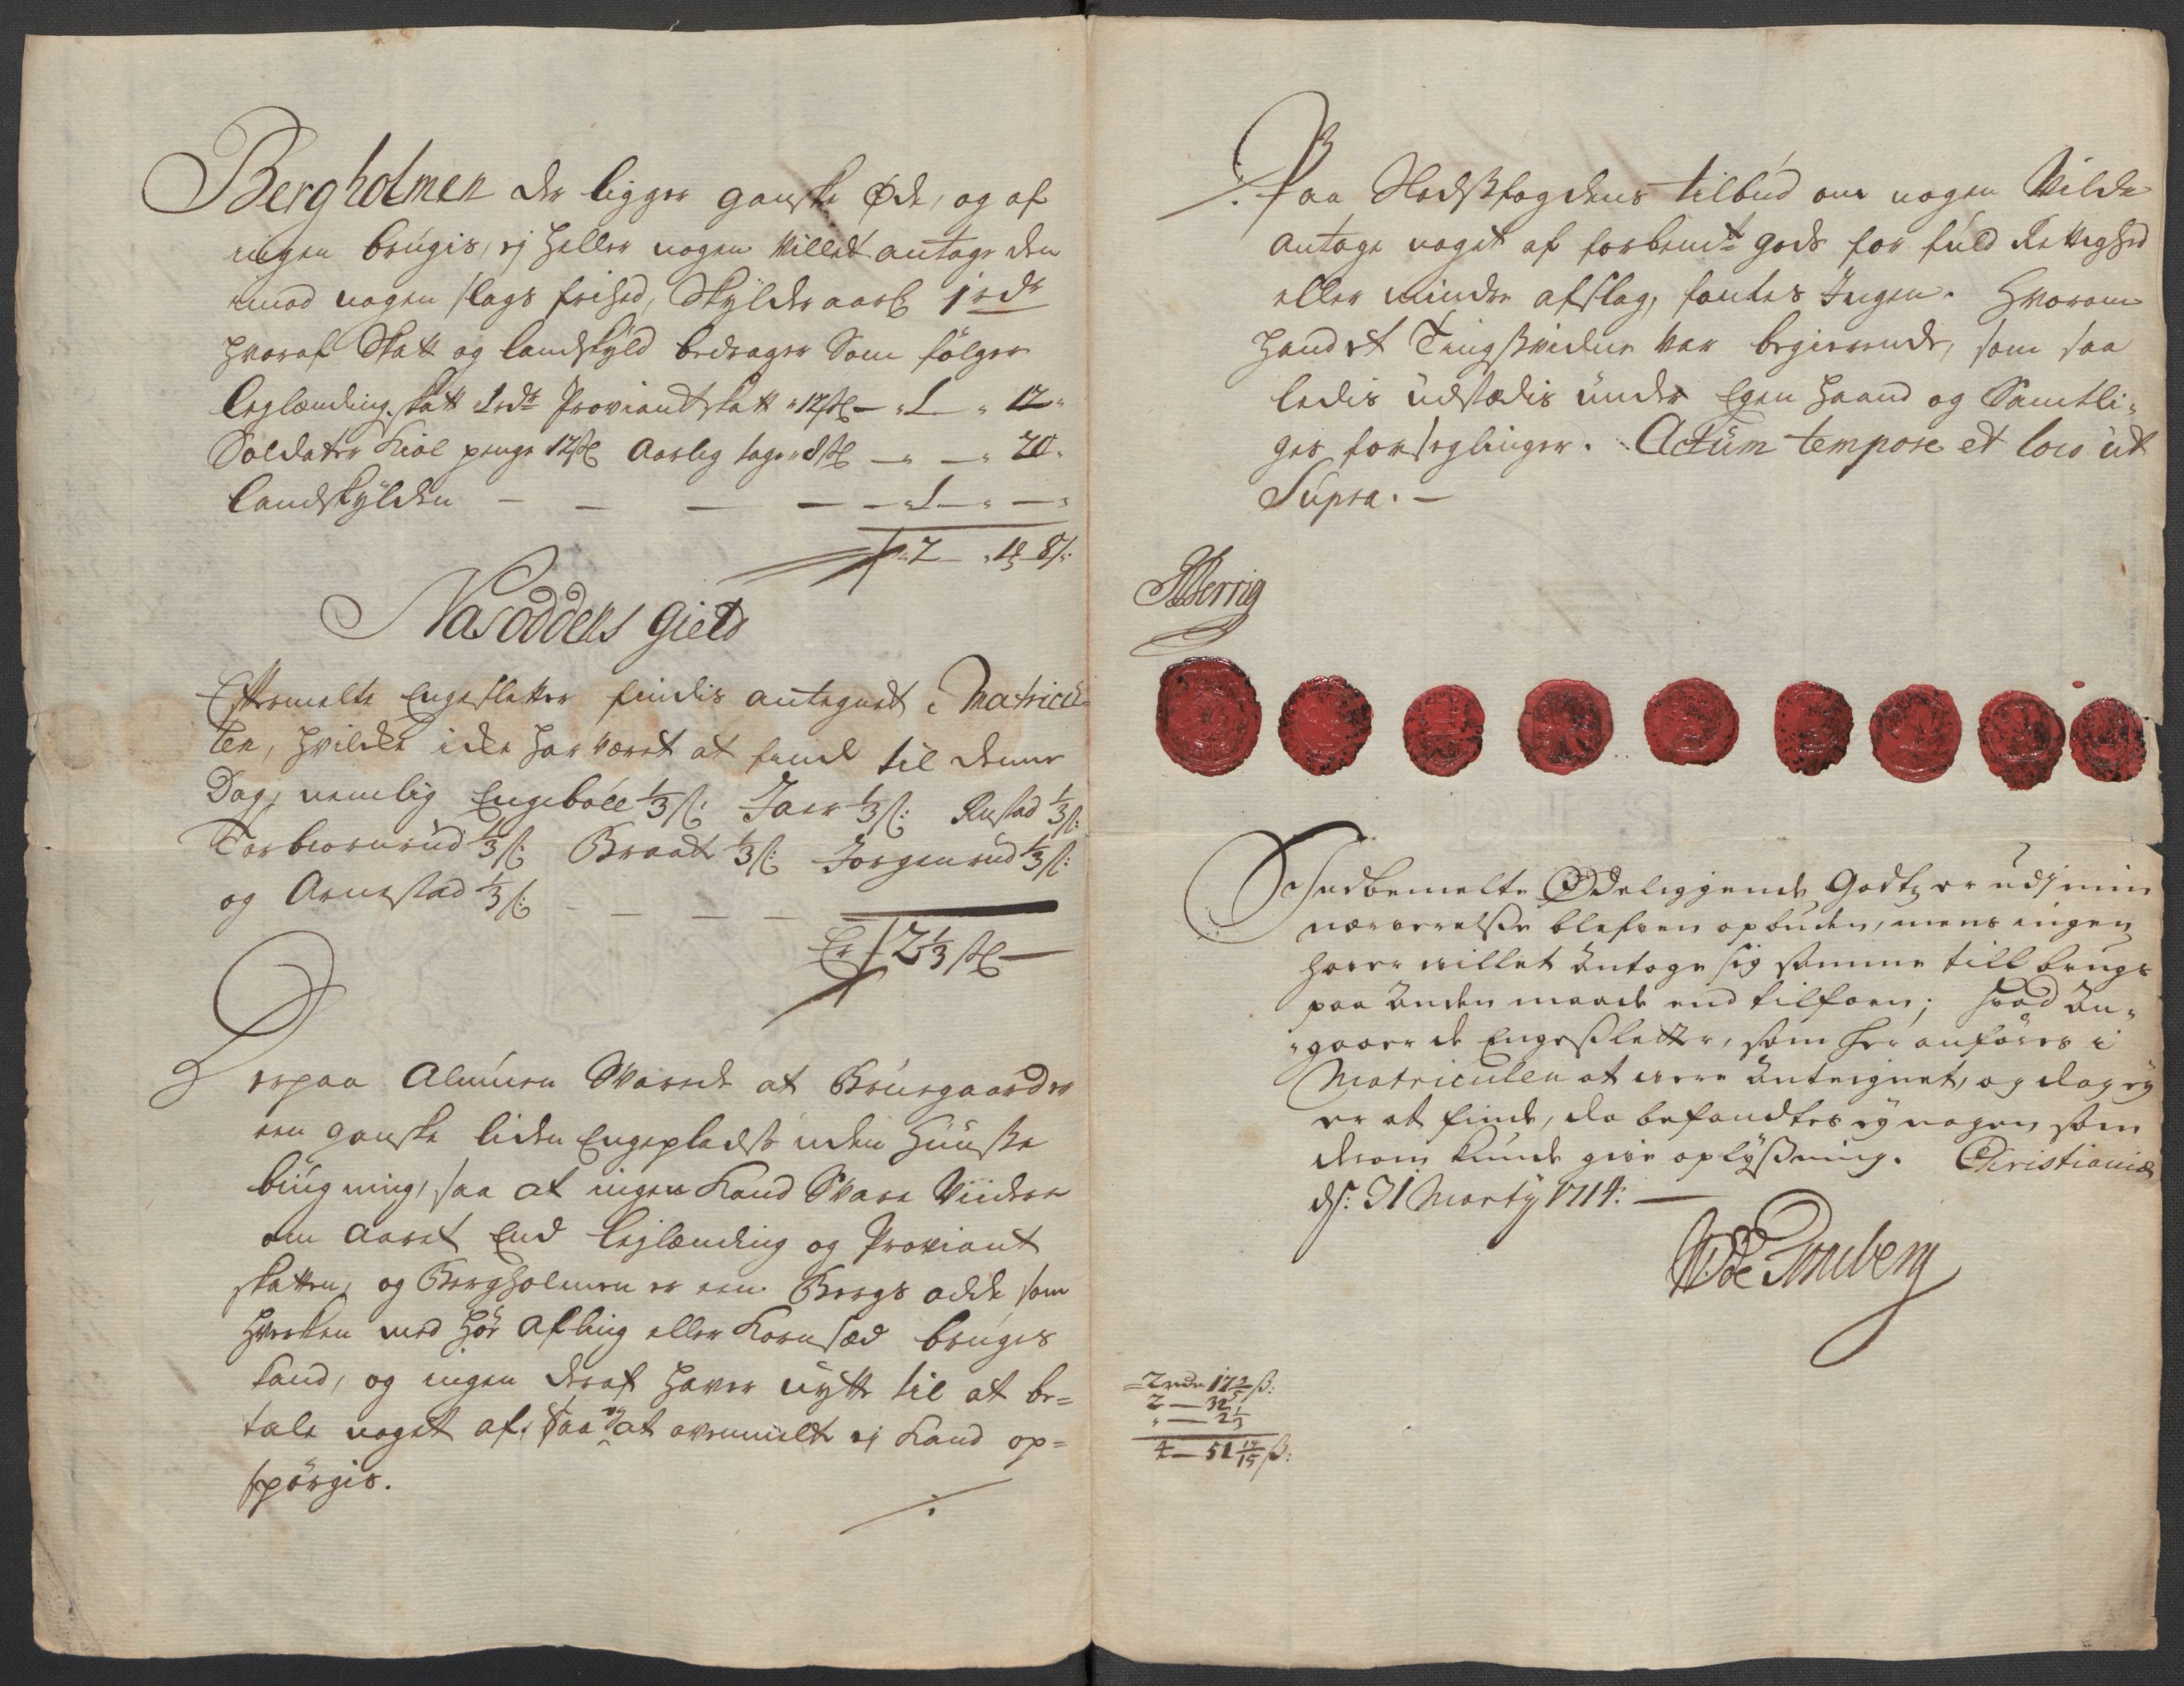 Bergholmen der ligger ganske Øde, og af
ingen brugis, ej heller nogen villet antage den
imod nogen slags frihed, Skylder aarl 1 rdr
hvoraf Skatt og landskyld bedrager Som følger
Leglænding skatt 1 rdr Proviantskatt 12 s – 1 – 12
Soldater Kiolpenge 12 s Aarlig tage 8 s – – 20
Landskylden – – – – 1 – –
2 –
Nasoddens Gield
Eftermelte Engesletter findis antegnet i Matricu=
len, hvilcke icke har været at finde til denne
Dag, nemlig Engeboll 1/3 s: Jaer 1/3 s: Rustad 1/3 s:
Torbiornrud 1/3 s: Braat 1/3 s: Jorgenrud 1/3 s:
og Arnestad 1/3 s: – – – –
Er 2 1/3 s –
Derpaa Almuen Svarede at Bruegaard er
een ganske liden Engeplads uden Huuse
bugning, saa at ingen Kand Svare Viidere
om Aaret End Leglænding og Proviant
skatten, og Bergholmen er een Bergs odde som
hverken med Høe Afling eller Kornsæd bruges
kand, og ingen deraf haver nytte til at be=
tale noget af. Saa og at ovenmelte ej Kand op=
spørgis.
·/·
Paa Stedsfogdens tilbud om nogen Vilde
antage noget af forbemte gods for fuld Rettighed
eller mindre afslag, fantes Ingen. Hvorom
hand et Tingsvidne var begierende, som saa
ledis udstædis under Egen haand og Samtli=
ges forseglinger. Actum tempore et loco ut
Supra. –
Indbemelte Ødeliggende Godtz er udj min
nærværelse blefven opbuden, mens ingen
haver villet antage sig samme till brugs
paa anden maade end tilforn; hvad an=
gaaer de Engesletter, som her anføres i
Matriculen at være antegnet, og dog ey
er at finde, da befandtes ey nogen som
derom kunde give oplysning. Christiania
ds: 31 Marty 1714. –
2 rdr 17 2/5 s:
2 – 32
– 2 1/3
4 – 51 11/15 s: